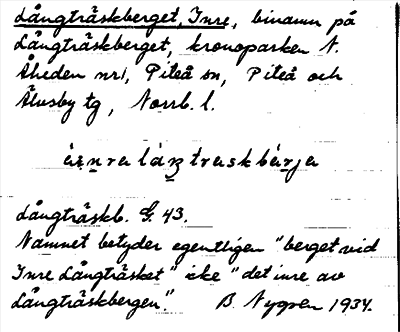 Långträskberget, Inre, binamn på
Långträskberget, kronoparken N.
Åheden nr 1, Piteå sn, Piteå och
Älvsby tg, Norrb. l.
Långträskb. G. 43.
Namnet betyder egentligen "berget vid
Inre Långträsket" icke "det inre av
Långträskbergen."    B. Nygren 1934.